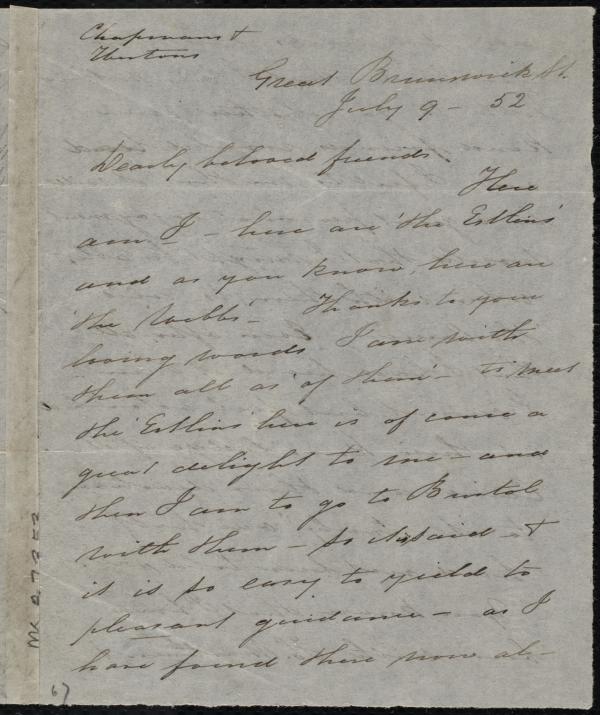 Chapmans &
Westons
Great Brunswick St.
July 9 - 52
Dearly beloved friends.
Here
am I - here are 'the Estlins'
and as you know, here are
'the Webbs' - Thanks to your
loving words I am with
them all as 'of them' - to meet
the 'Estlins' here is of course a
great delight to me - and
then I am to go to Bristol
with them - so it is said - &
it is so easy to yield to
pleasant guidance - as I
have found these now ab-
67